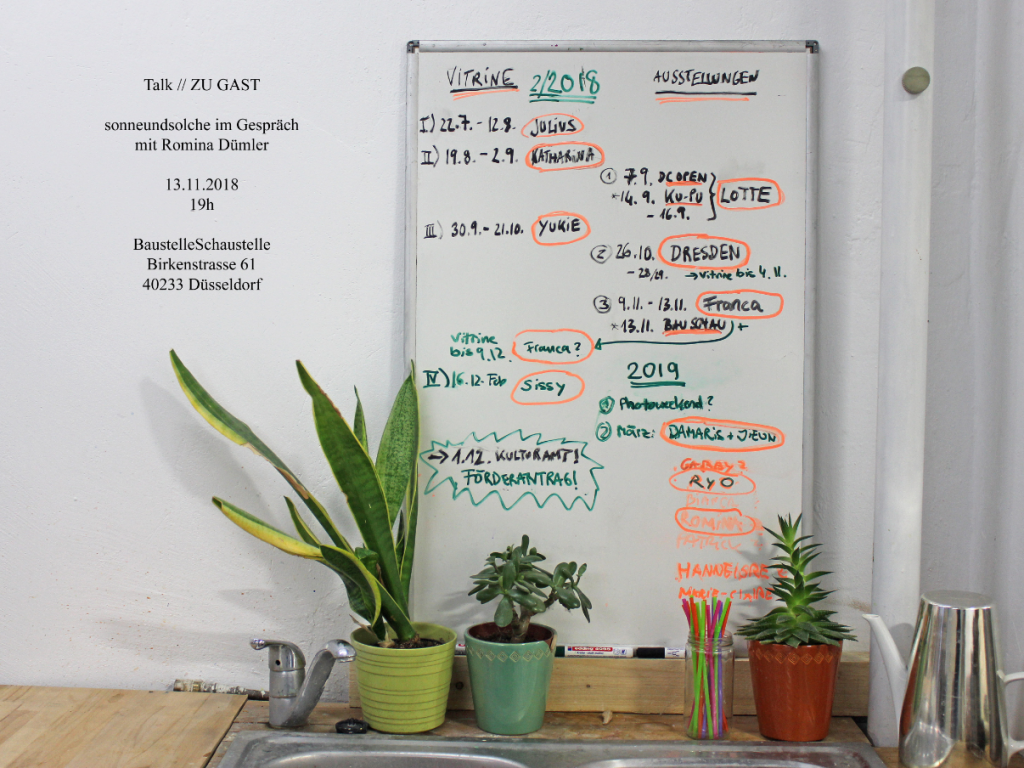 Talk // ZU GAST
sonneundsolche im Gespräch
mit Romina Dümler
13.11.2018
19h
BaustelleSchaustelle
Birkenstrasse 61
40233 Düsseldorf
VITRINE 2/2018
I) 22.7. - 12.8. JULIUS
II) 19.8. - 2.9. KATHARINA
III) 30.9. - 21.10. YUKIE
Vitrine
bis 9.12. Franca?
IV) 16.12. Feb Sissy
→ 1.12. KULTURAMT!
FÖRDERANTRAG!
AUSSTELLUNGEN
① 7.9. DC OPEN
*14. 9. KU-PU } LOTTE
- 16.9.
② 26.10. DRESDEN
- 28/29. → Vitrine bis 4.11.
③ 9.11. - 13.11. Franca
*13.11. BAUSCHAU +
2019
① Photoweekend?
② März: DAMARIS + JIEUN
GABBY?
RYO
ROMINA
HANNEISRE